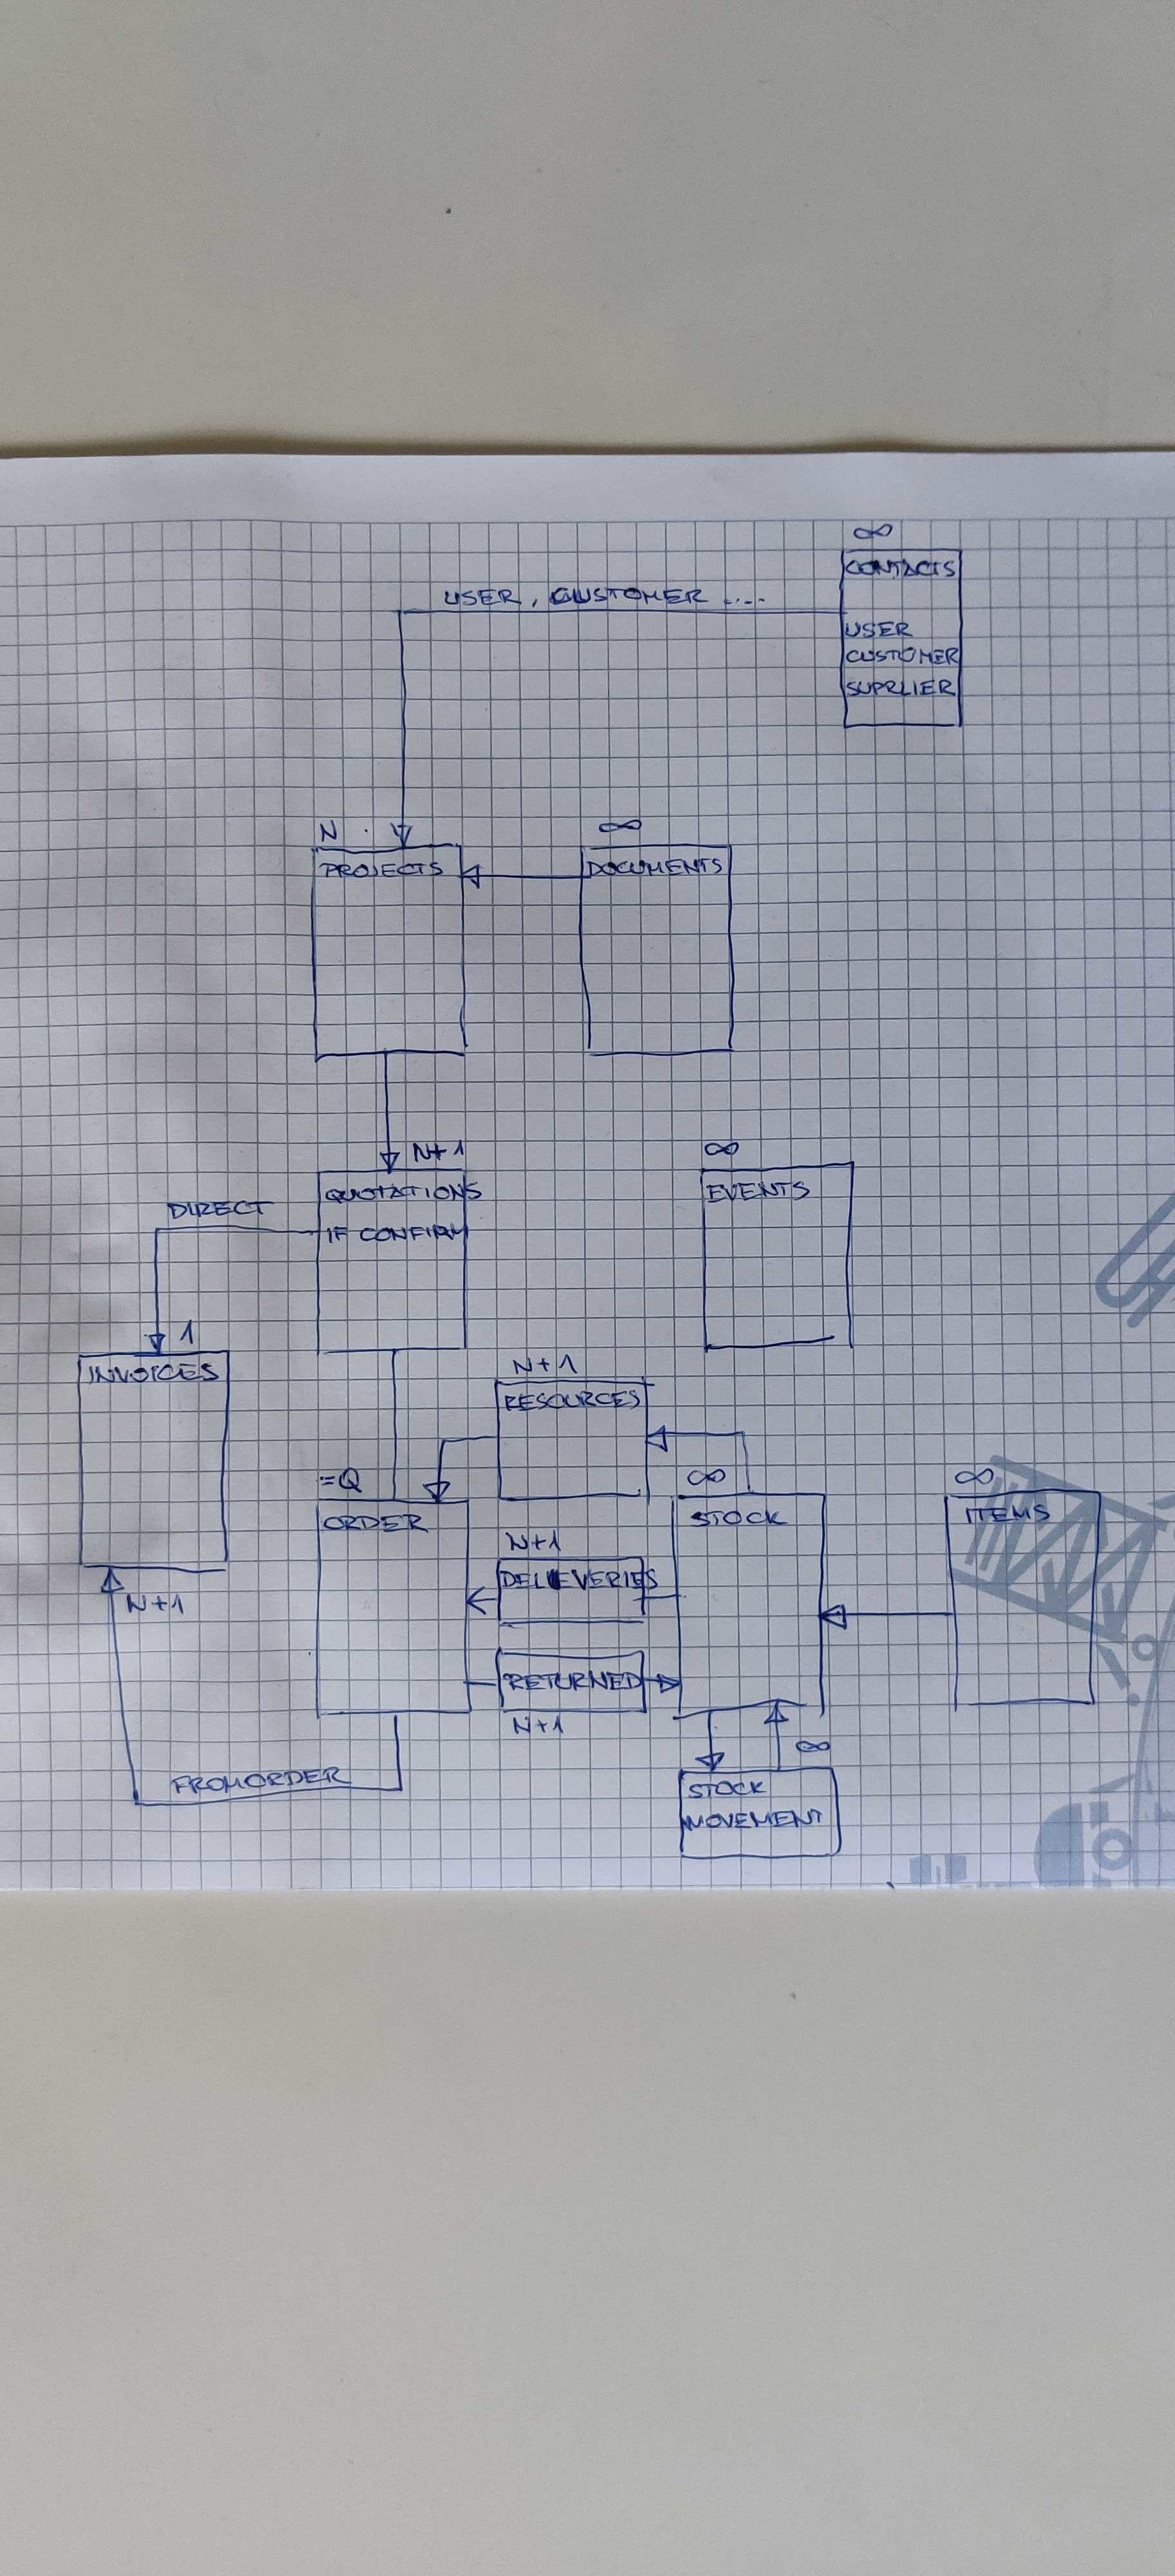 ∞
CONTACTS
USER, CUSTOMER ....
USER
CUSTOMER
SUPPLIER
N
∞
PROJECTS
DOCUMENTS
N+1
∞
QUOTATIONS
EVENTS
DIRECT
IF CONFIRM
1
INVOICES
N+1
RESOURCES
=Q
∞
∞
ORDER
STOCK
ITEMS
N+1
DELIEVERIES
N+1
RETURNED
N+1
∞
FROM ORDER
STOCK
MOVEMENT